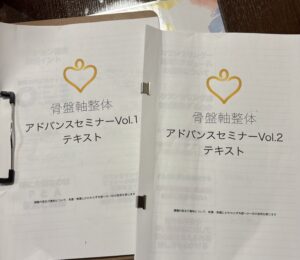 骨盤軸整体
アドバンスセミナーVol.1
テキスト
骨盤軸整体
アドバンスセミナーVol.2
テキスト